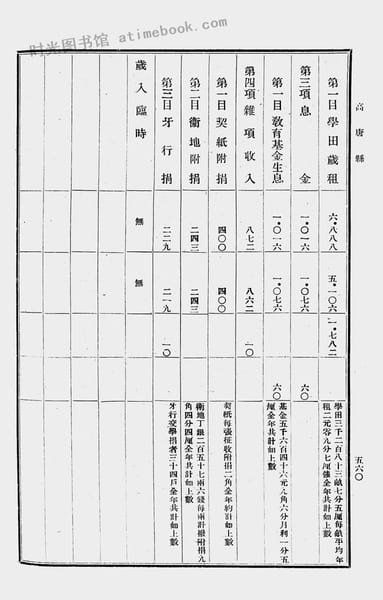 时光图书馆 - atimebook.com
高唐縣
五六〇
第一目學田歲租
六.八八八
五.一〇六
一.七八二
學田三千二百八十三畝七分五厘每畝平均年
租二元零九分七厘強全年共計如上數
第三項息金
一.〇一六
一.〇七六
六〇
第一目敎育基金生息
一.〇一六
一.〇七六
六〇
基金五千六百四十六元八角六分月利一分五
厘全年共計如上數
第四項雜項收入
八七二
八六二
一〇
第一目契紙附捐
四〇〇
四〇〇
契紙每張征收附捐二角全年約計如上數
第二目衞地附捐
二四三
二四三
衞地丁銀二百五十七兩六錢每兩計撥附捐九
角四分四厘全年共計如上數
第三目牙行捐
二二九
二一九
一〇
牙行交學捐者三十四戶全年共計如上數
歲入臨時
無
無